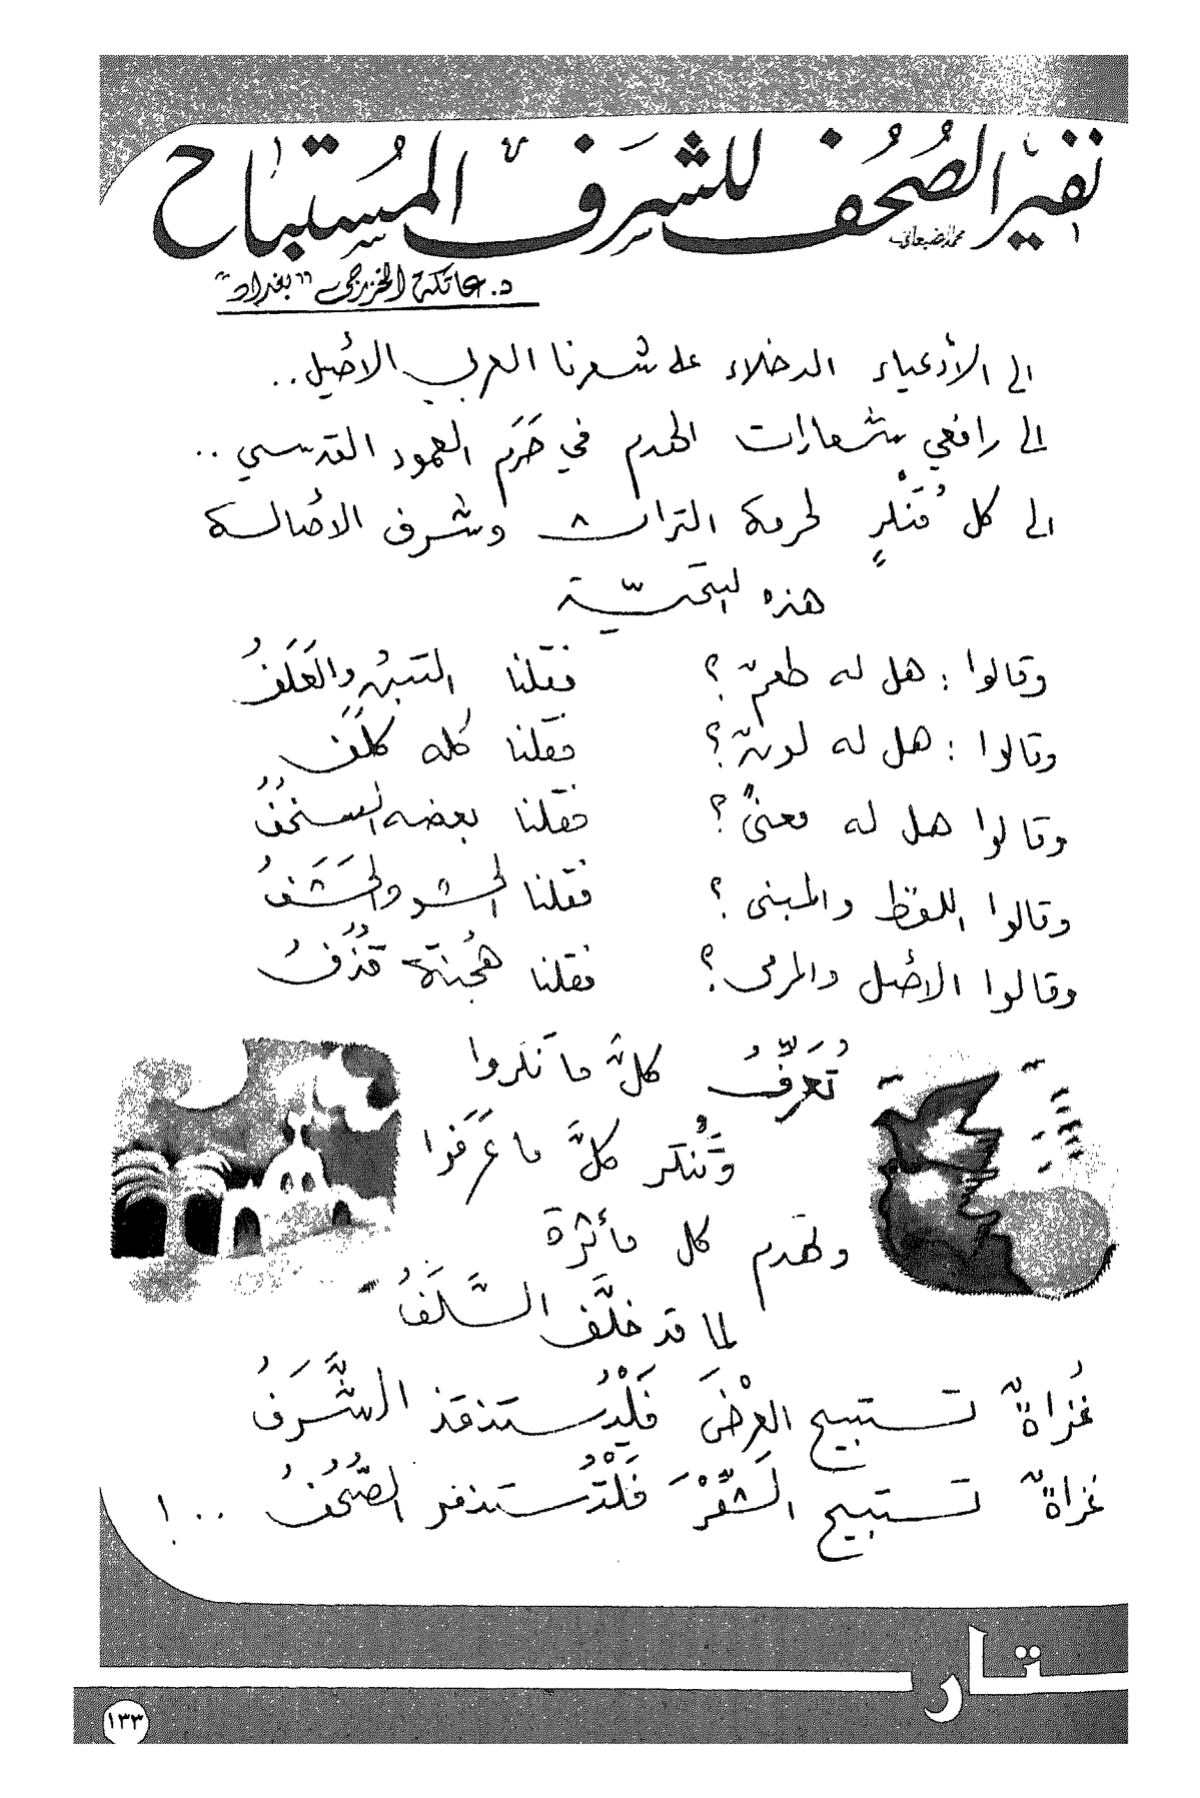 نفير الصُحُف للشَرَف المُستباح
محمد ضبعاني
د. عاتكة الخزرجي "بغداد"
الى الأدعياء الدخلاء على شعرنا العربي الأصيل..
الى رافعي شعارات الهدم في حَرَم العمود القدسي ..
الى كل مُتَنْكرٍ لحرمة التراث وشرف الأصالة
هذه التحيّة
وقالوا : هل له طعمٌ ؟ فقلنا التبنُ والعَلَفُ
وقالوا : هل له لونٌ ؟ فقلنا كله كَلَفُ
وقالوا هل له معنىً ؟ فقلنا بعضه السخفُ
وقالوا اللفظ والمبنى ؟ فقلنا الحشو والحَشَفُ
وقالوا الأصل والمرمى ؟ فقلنا هُجنة قُذُفُ
تُعَرِّفُ كلَّ ما نكروا
وتُنكر كلَّ ما عَرَفوا
وتهدم كل مأثرة
لما قد خلَّف السَّلَفُ
غُزاةٌ تستبيح العِرْضَ فَلْيُستنقذ الشَّرَفُ
غزاةٌ تستبيح الشِّعْرَ فَلْتُستنفر الصُّحُفُ ..!
تار
١٣٣